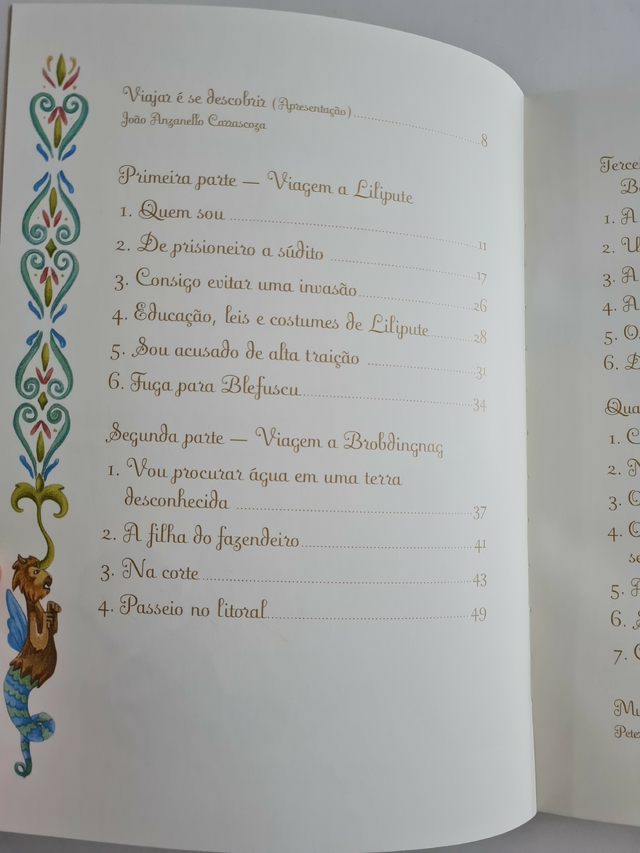 Viajar é se descobrir (Apresentação) 8
João Anzanello Carrascoza
Primeira parte — Viagem a Lilipute
1. Quem sou 11
2. De prisioneiro a súdito 17
3. Consigo evitar uma invasão 26
4. Educação, leis e costumes de Lilipute 28
5. Sou acusado de alta traição 31
6. Fuga para Blefuscu 34
Segunda parte — Viagem a Brobdingnag
1. Vou procurar água em uma terra
desconhecida 37
2. A filha do fazendeiro 41
3. Na corte 43
4. Passeio no litoral 49
1. A
2.
3. A
4. A
5.
6.
1.
2.
3.
4.
se
5.
6.
7.